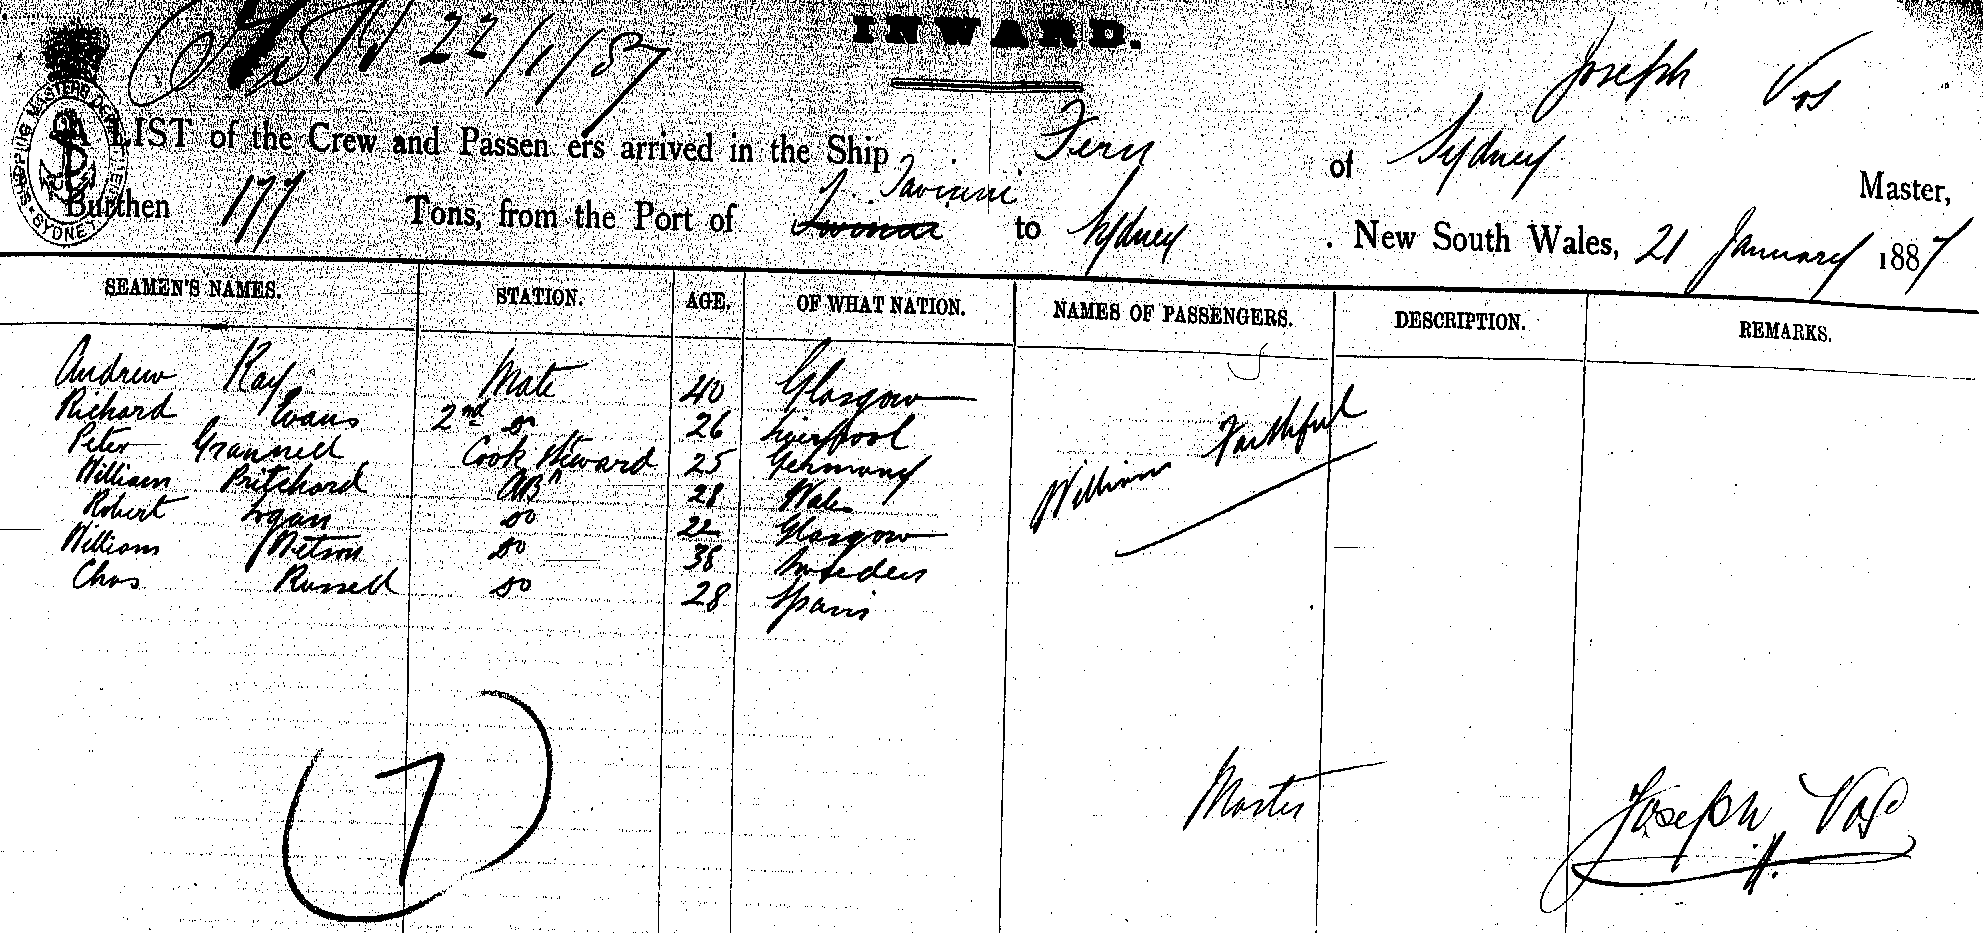 22/1/87
INWARD.
Joseph Vos
SHIPPING MASTERS SYDNEY
A LIST of the Crew and Passen ers arrived in the Ship Fern of Sydney Master,
Burthen 177 Tons, from the Port of Taviuni to Sydney . New South Wales, 21 January 1887
SEAMEN'S NAMES. STATION. AGE. OF WHAT NATION. NAMES OF PASSENGERS. DESCRIPTION. REMARKS.
Andrew Kay Mate 40 Glasgow
Richard Evans 2nd Do 26 Liverpool
Peter Grannell Cook Steward 25 Germany
William Pritchard AB 28 Wales
Robert Logan Do 22 Glasgow
William Do 38 Sweden
Chas Russell Do 28 Spain
William Faithful
7
Master Joseph Vos